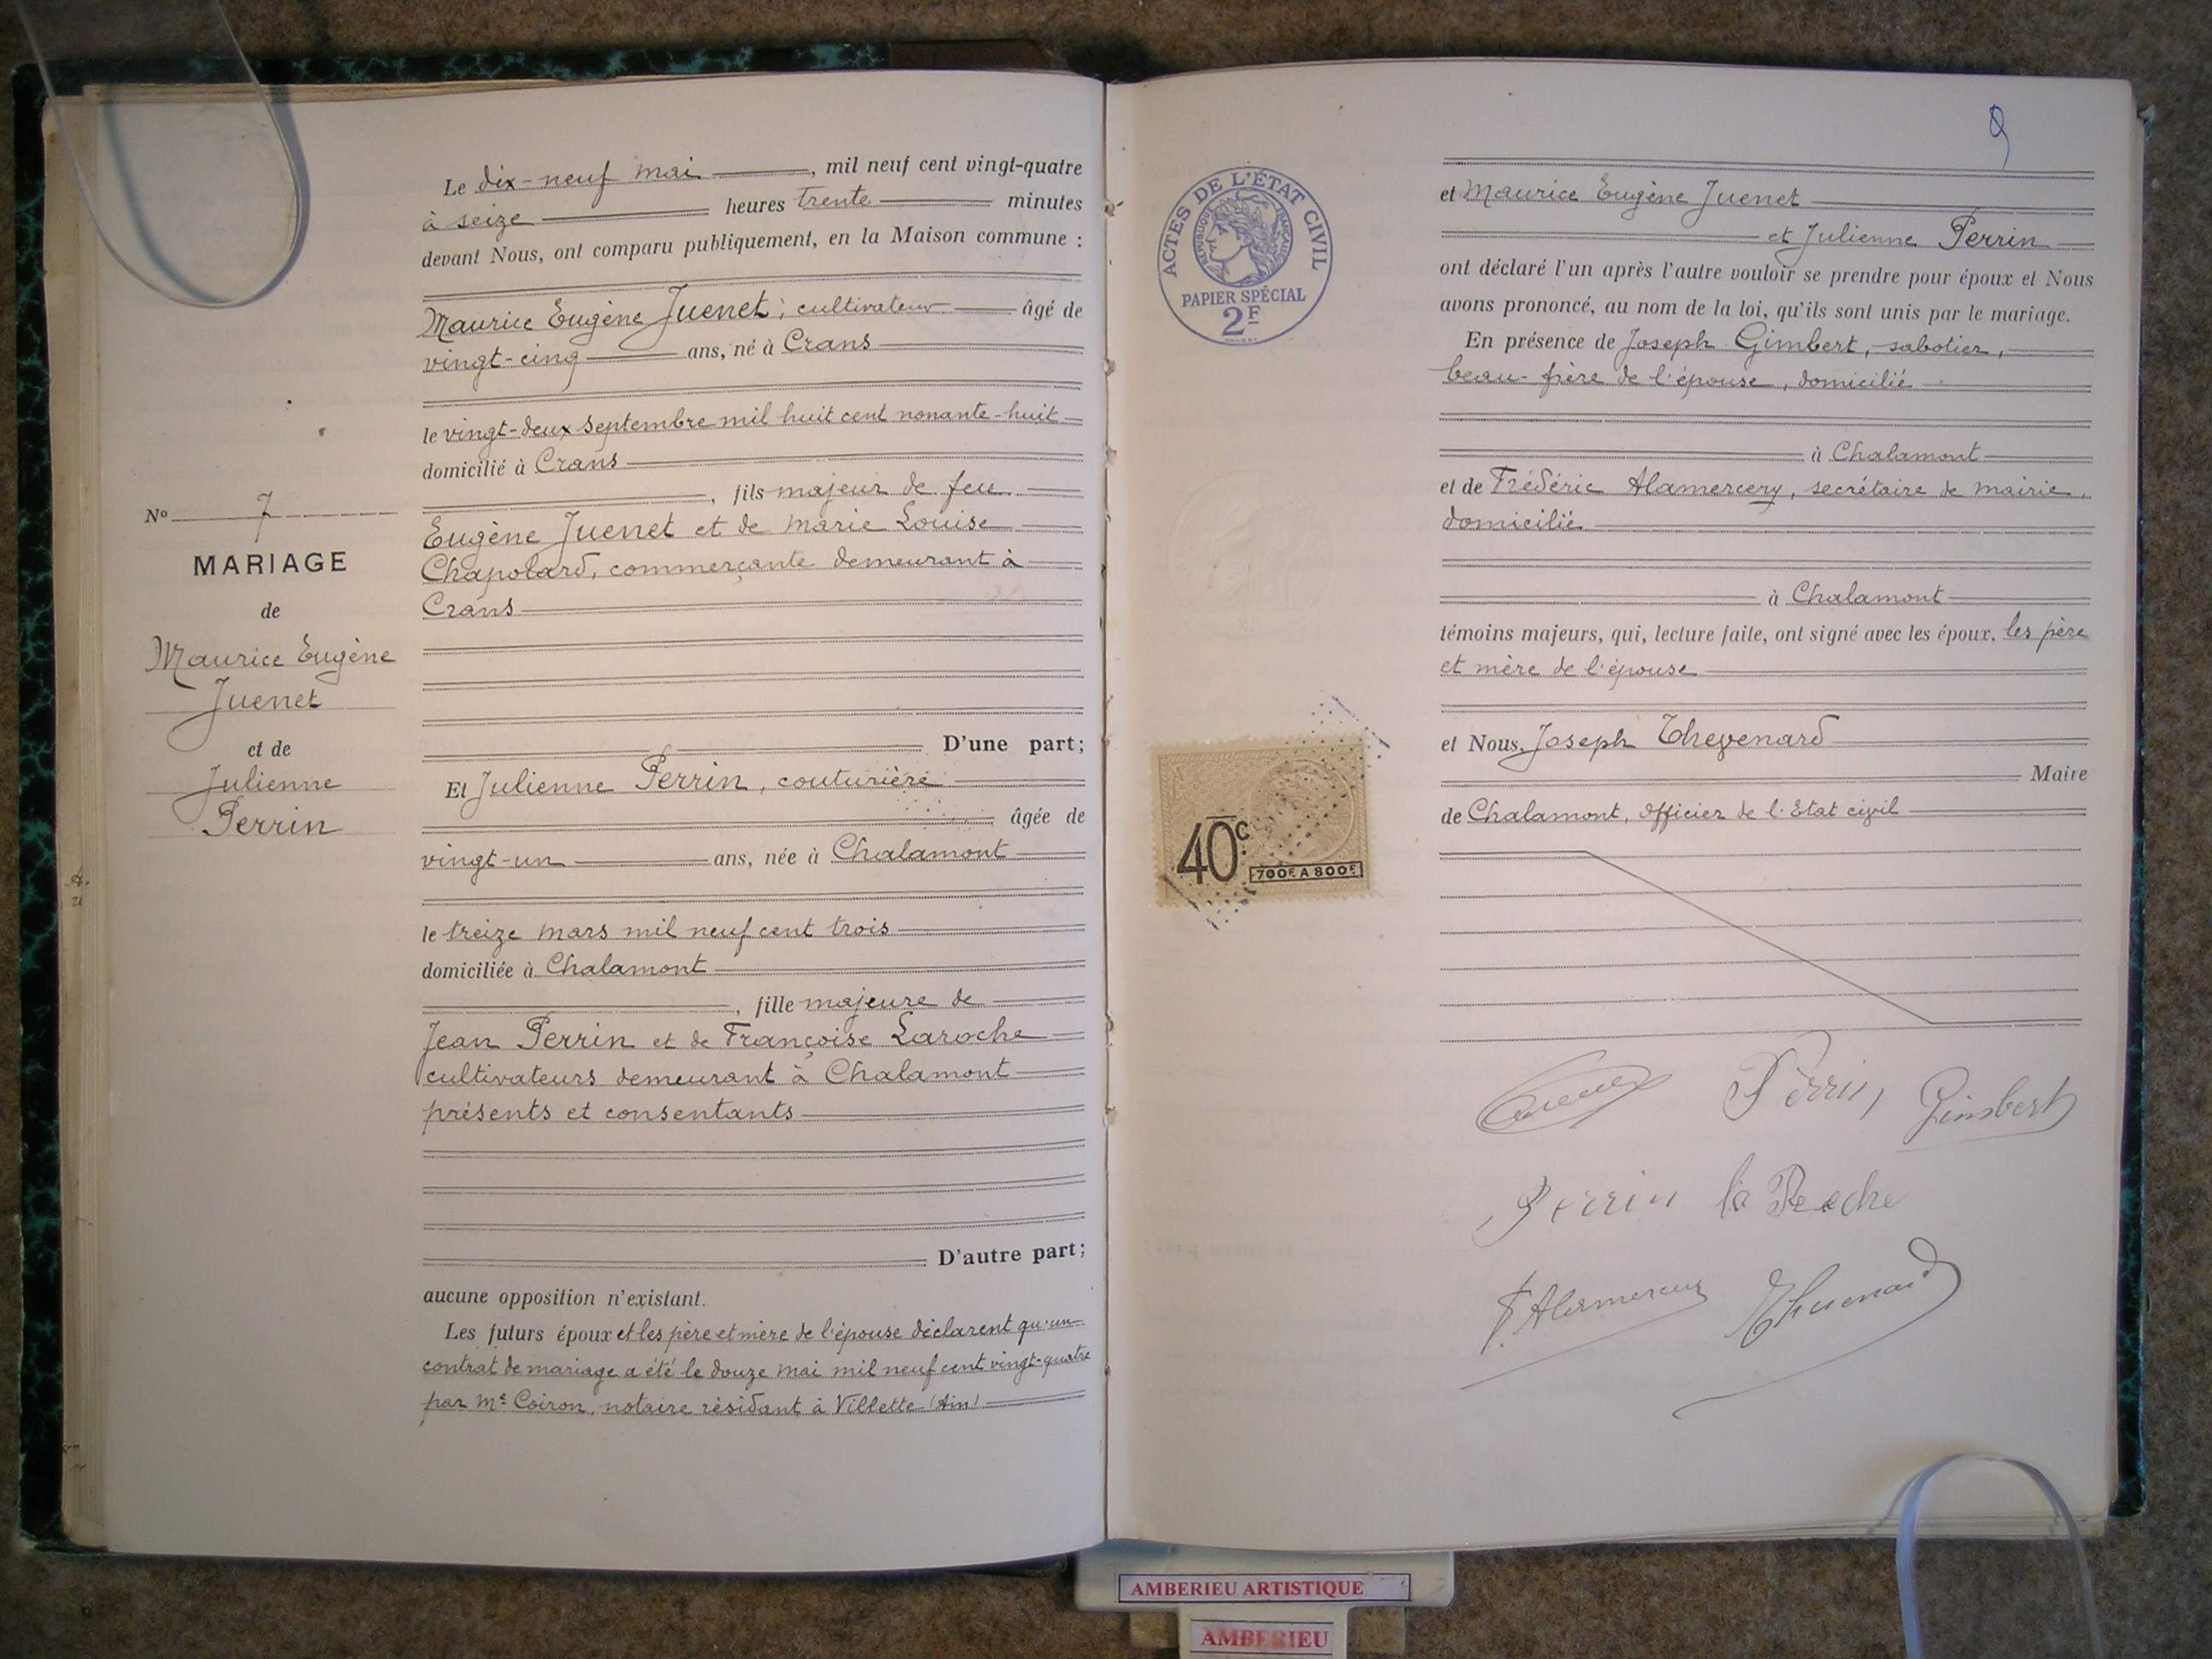 Le dix-neuf mai, mil neuf cent vingt-quatre
à seize heures trente minutes
devant Nous, ont comparu publiquement, en la Maison commune :
Maurice Eugène Juenet, cultivateur âgé de
vingt-cinq ans, né à Crans
le vingt-deux septembre mil huit cent nonante-huit
domicilié à Crans
, fils majeur de feu
Eugène Juenet et de Marie Louise
Chapolard, commerçante demeurant à
Crans
D'une part;
Et Julienne Perrin, couturière
âgée de
vingt-un ans, née à Chalamont
le treize mars mil neuf cent trois
domiciliée à Chalamont
, fille majeure de
Jean Perrin et de Françoise Laroche
cultivateurs demeurant à Chalamont
présents et consentants
D'autre part;
aucune opposition n'existant.
Les futurs époux et les père et mère de l'épouse déclarent qu'un
contrat de mariage a été le douze mai mil neuf cent vingt-quatre
par Me Coiron, notaire résidant à Villette (Ain)
No 7
MARIAGE
de
Maurice Eugène
Juenet
et de
Julienne
Perrin
9
ACTES DE L'ÉTAT CIVIL
RÉPUBLIQUE FRANÇAISE
PAPIER SPÉCIAL
2F
40c
700F A 800F
et Maurice Eugène Juenet
et Julienne Perrin
ont déclaré l'un après l'autre vouloir se prendre pour époux et Nous
avons prononcé, au nom de la loi, qu'ils sont unis par le mariage.
En présence de Joseph Gimbert, sabotier,
beau-frère de l'épouse, domicilié
à Chalamont
et de Frédéric Alamercery, secrétaire de mairie,
domicilié
à Chalamont
témoins majeurs, qui, lecture faite, ont signé avec les époux, les père
et mère de l'épouse
et Nous, Joseph Thevenard
Maire
de Chalamont, officier de l'Etat civil
Perrin Gimbert
Perrin la Roche
F. Alamercery Thevenard
AMBERIEU ARTISTIQUE
AMBERIEU